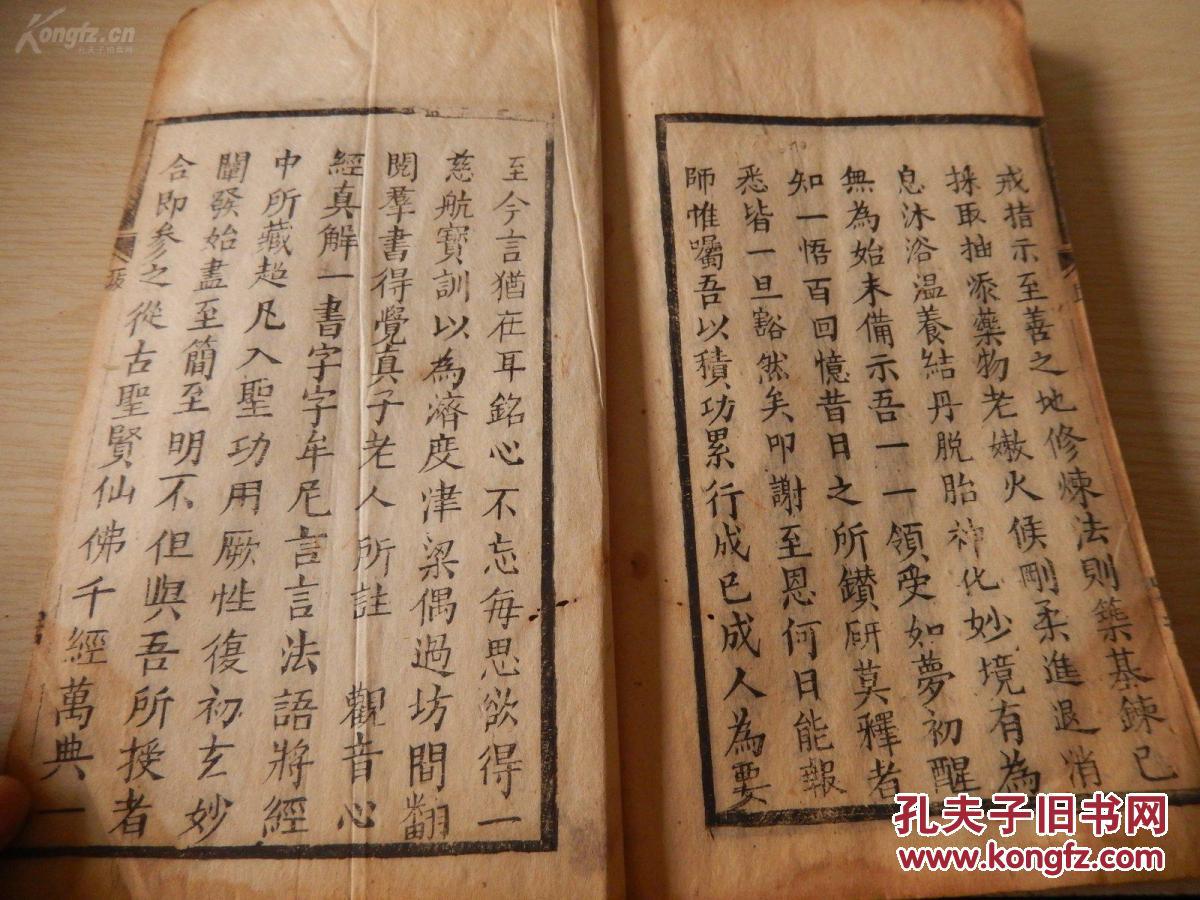 戒指示至善之地修煉法則築基鍊已
採取抽添藥物老嫩火候剛柔進退消
息沐浴温養結丹脱胎神化妙境有為
無為始末備示吾一一領受如夢初醒
知一悟百回憶昔日之所鑚研莫釋者
悉皆一旦豁然矣叩謝至恩何日能報
師惟囑吾以積功累行成已成人為要
至今言猶在耳銘心不忘每思欲得一
慈航寳訓以為濟度津梁偶過坊間翻
閱羣書得覺真子老人所註 觀音心
經真解一書字字牟尼言言法語將經
中所藏超凡入聖功用厥性復初玄妙
闡發始盡至簡至明不但與吾所授者
合即參之從古聖賢仙佛千經萬典一
跋
Kongfz.cn
孔夫子旧书网
孔夫子旧书网
www.kongfz.com